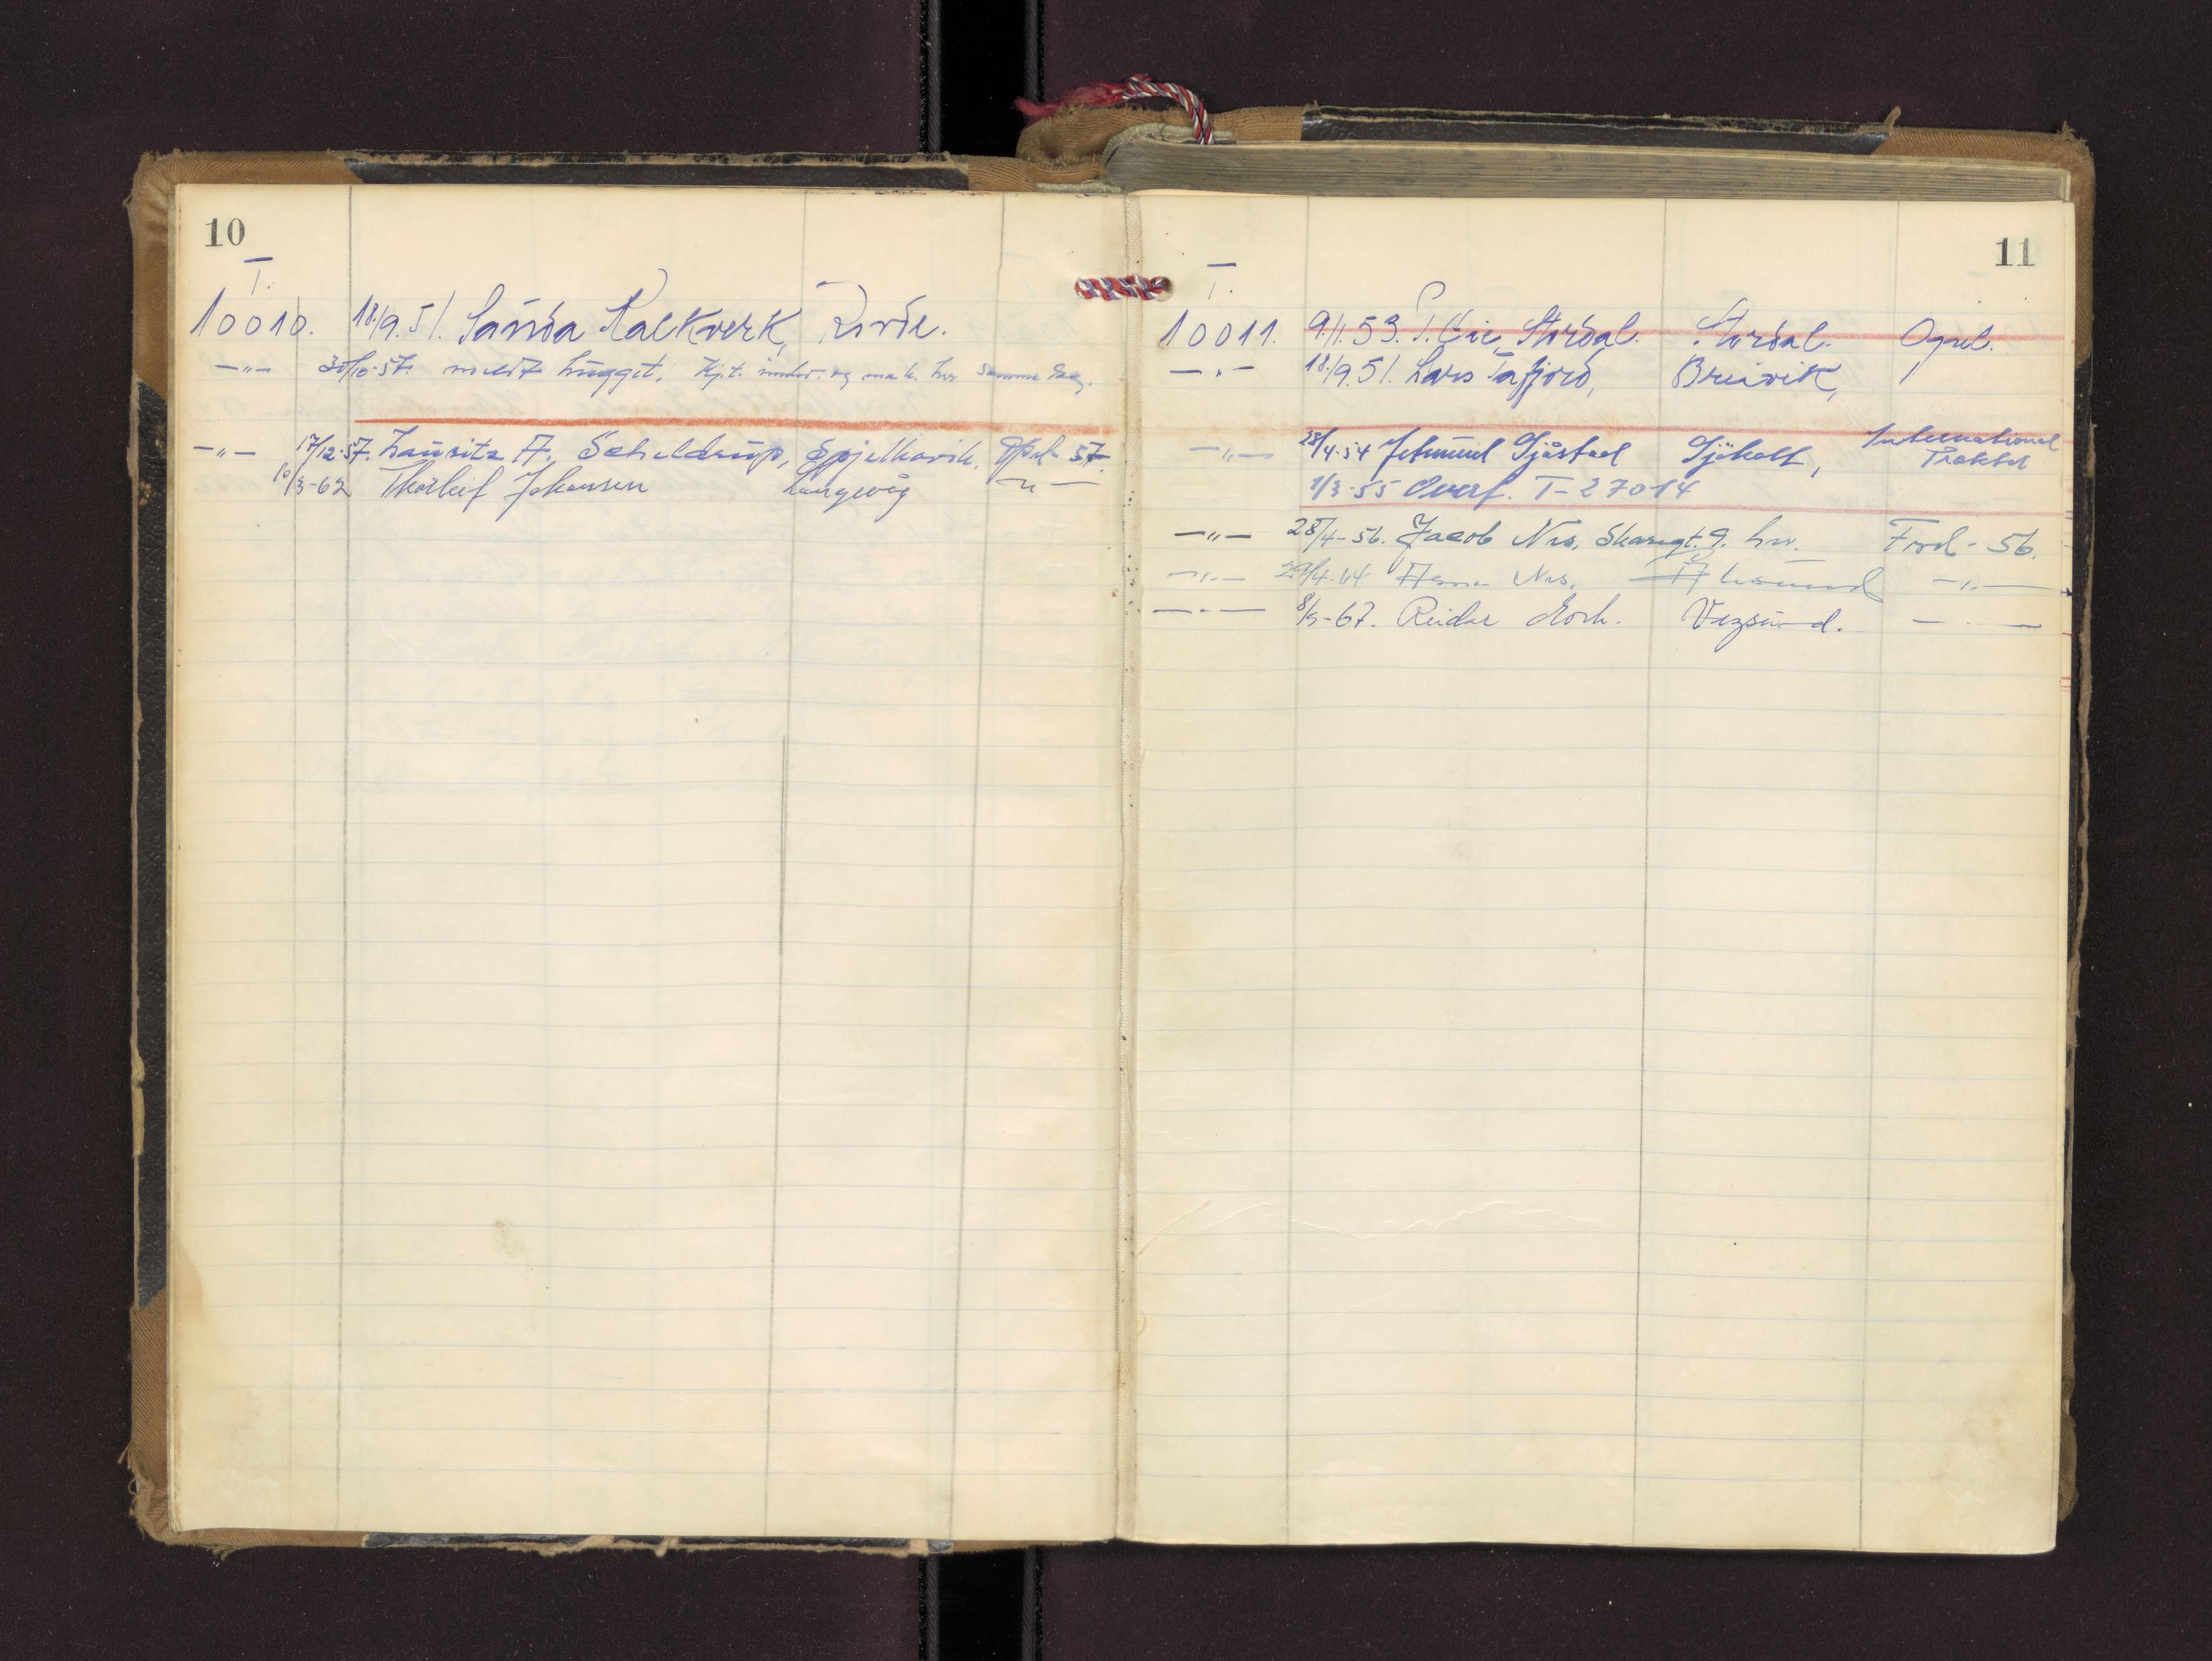 10
T.
10010. 18/9.51. Sanda Kalkverk,
-"- 30/10-57. meldt hugget. Kjt. samme dag.
-"- 17/12-57. Lauritz A. Scheldrup, Spjelkavik. Opel 57.
10/3-62 Thorleif Johansen Langevåg -"-
11
T.
10011. 9/1.53. Stordal. Stordal. Opel.
-"- 18/9.51. Lars Tafjord, Breivik,
-"- 28/4-54 Jetmund Gjåstad Sjøholt, International Traktor
1/3-55 Overf. T-27014
-"- 28/4-56. Jacob Nes, Skaregt. 9. her. Ford - 56.
-"- 29/4-64 Nes, Ålesund -"-
-"- 8/5-67. Reidar Vegsund. -"-